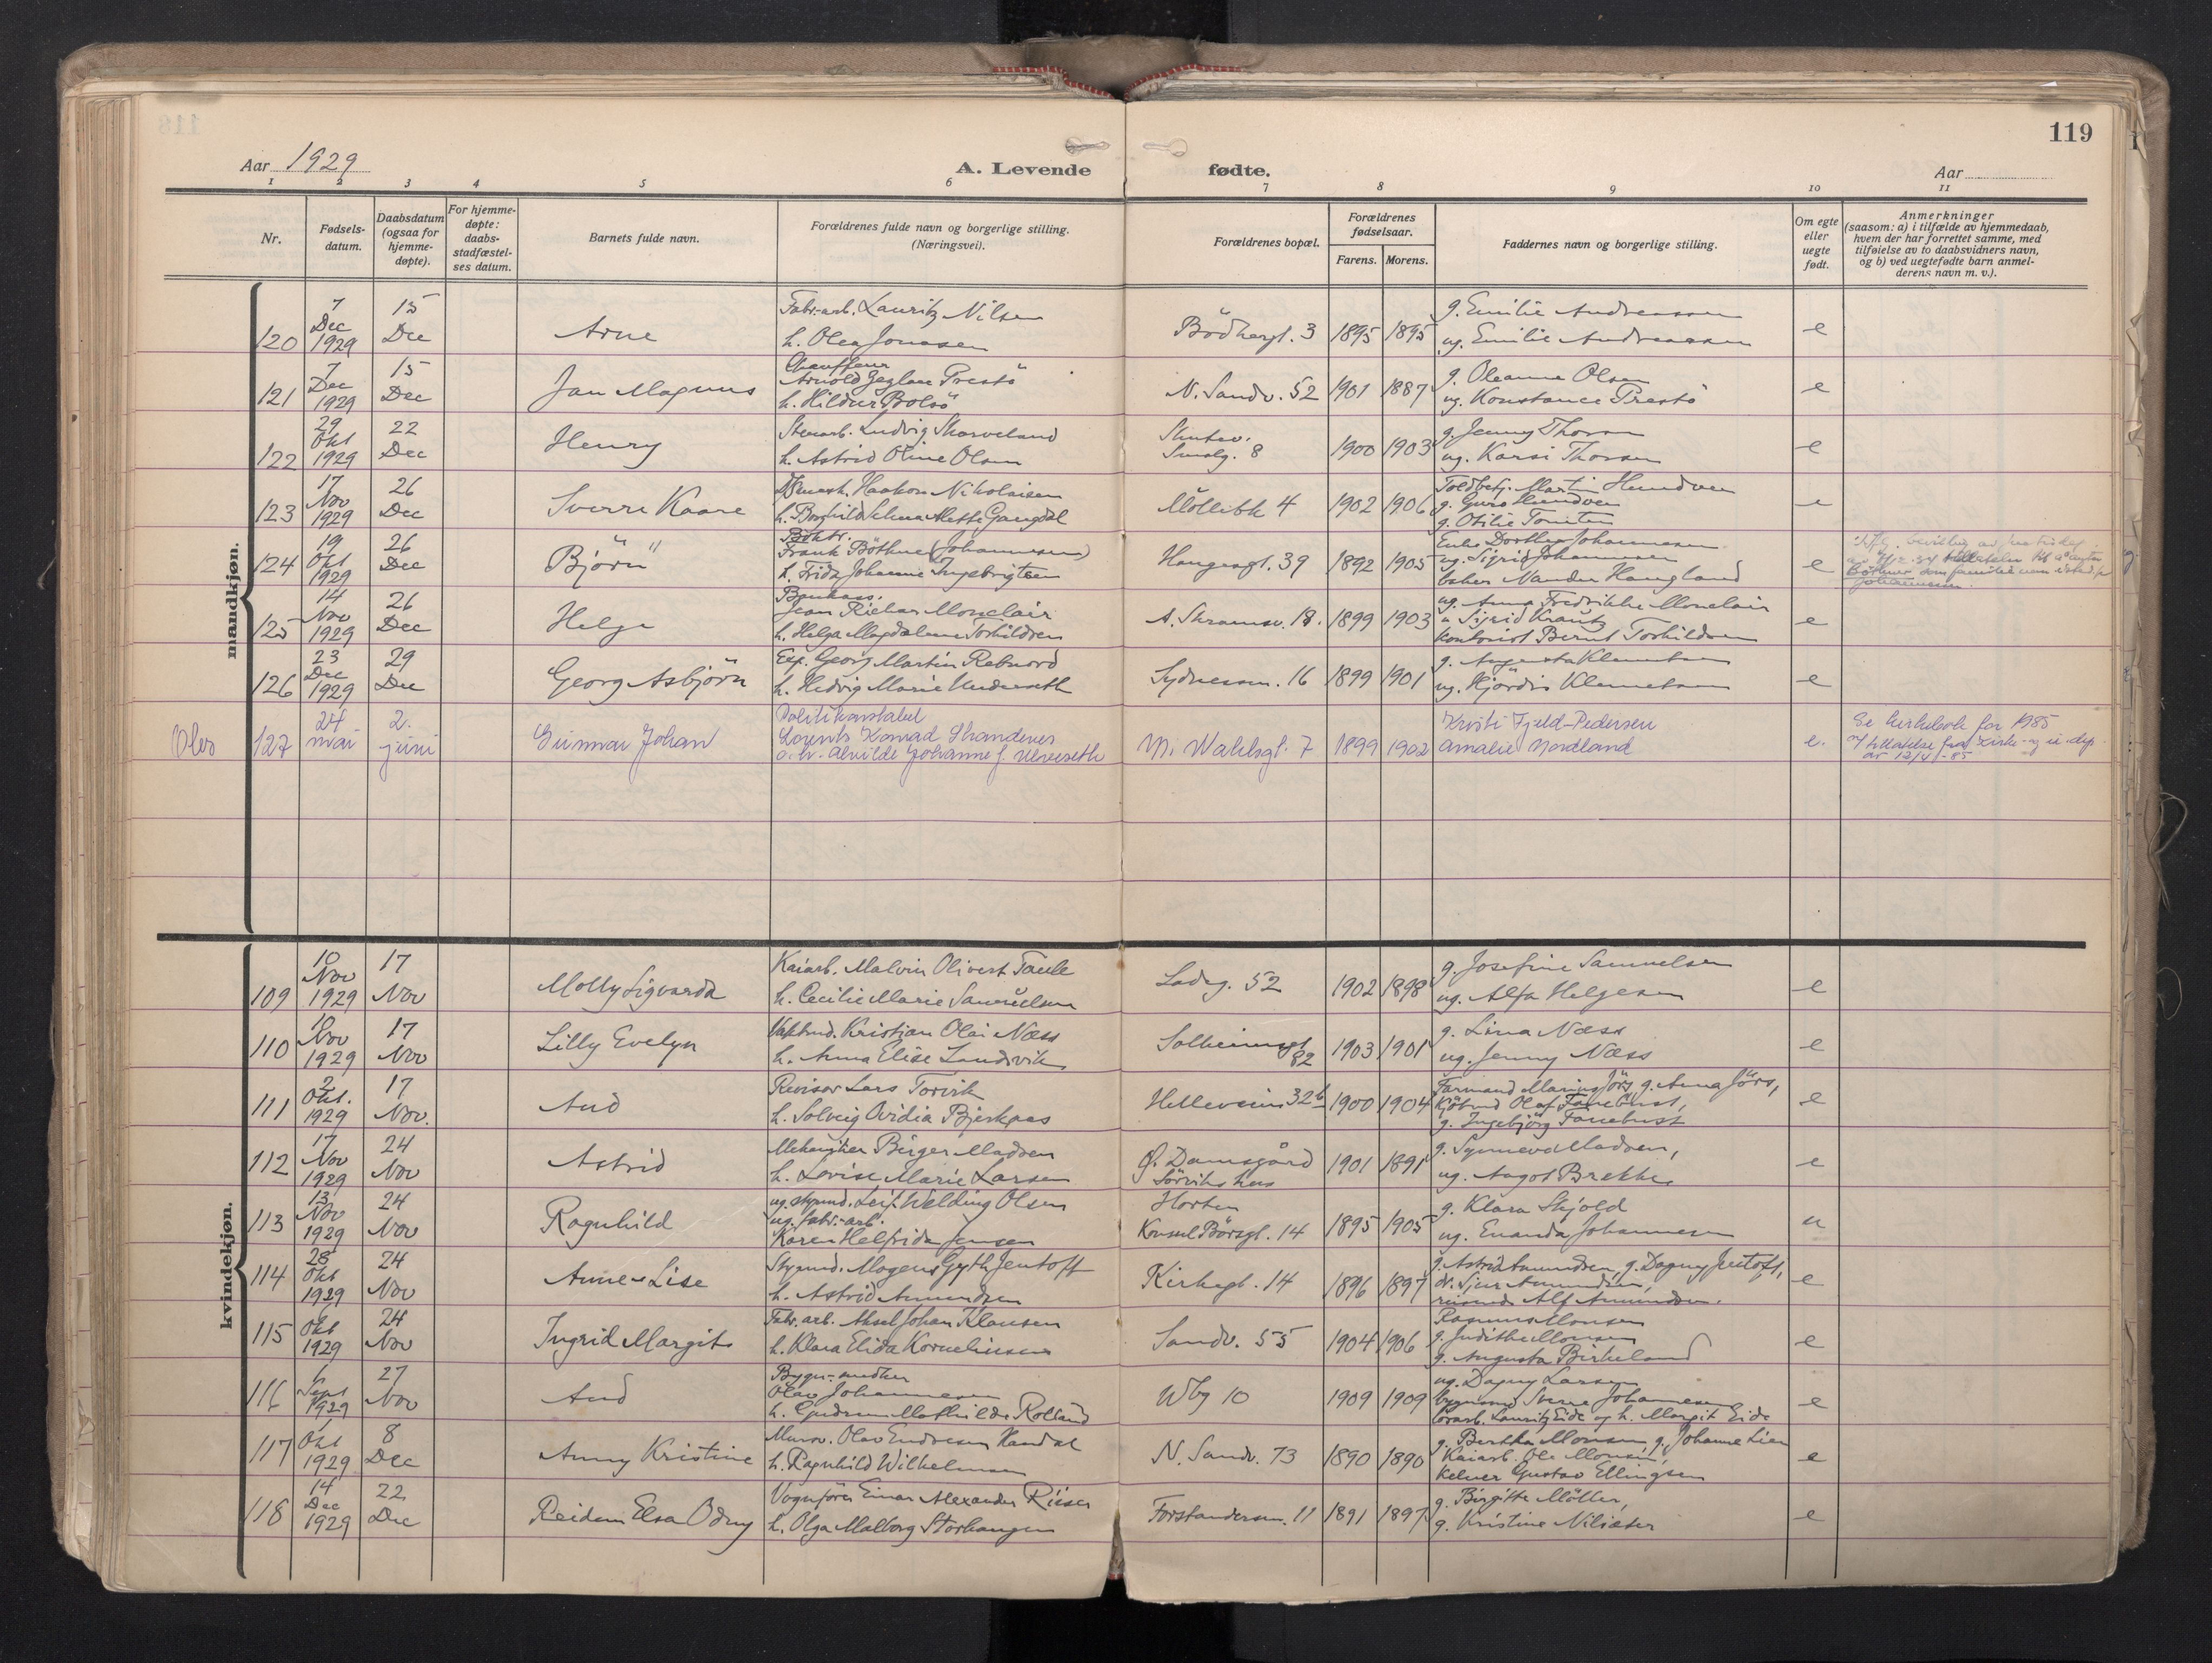 119
Aar 1929
A. Levende
fødte.
Aar
1 2 3 4 5 6 7 8 9 10 11
Nr.
Fødsels-
datum.
Daabsdatum
(ogsaa for
hjemme-
døpte).
For hjemme-
døpte:
daabs-
stadfæstel-
ses datum.
Barnets fulde navn.
Forældrenes fulde navn og borgerlige stilling.
(Næringsvei).
Forældrenes bopæl.
Forældrenes
fødselsaar.
Farens. Morens.
Faddernes navn og borgerlige stilling.
Om egte
eller
uegte
født.
Anmerkninger
(saasom: a) i tilfælde av hjemmedaab,
hvem der har forrettet samme, med
tilføielse av to daabsvidners navn,
og b) ved uegtefødte barn anmel-
derens navn m. v.).
mandkjøn.
120 7 Dec 1929 15 Dec Arne
Fabr.arb. Lauritz Nilsen
h. Olea Jonasen
3 1895 1895
g. Emilie Andreassen
ug. Emilie Andreassen
e
121 7 Dec 1929 15 Dec Jan Magnus
Chauffeur
Arnold Prestö
h. Hildur Bolsö
N. Sandv. 52 1901 1887
g. Oleanna Olsen
ug. Konstance Prestö
e
122 29 Okt 1929 22 Dec Henry
Stenarb. Ludvig Skarveland
h. Astrid Oline Olsen
8 1900 1903
g. Jenny Thorsen
ug. Karsi Thorsen
e
123 17 Nov 1929 26 Dec Sverre Kaare
Haakon Nikolaisen
h. Borghild Selma Mette Gangdal
Möllebk 4 1902 1906
Toldbetj. Martin Hundven
g. Guro Hundven
g. Otilie
e
124 19 Okt 1929 26 Dec Björn
Frank Böthne (Johannesen)
h. Frida Johanne Ingebrigtsen
Haugesgt. 39 1892 1905
Enke Dorthea Johannesen
ug. Sigrid Johannesen
baker Haugland
e
Johannesen.
125 14 Nov 1929 26 Dec Helge
Jean Monclair
h. Helga Magdalene Torkildsen
A. Skramsv. 18. 1899 1903
ug. Anna Fredrikke Monclair
" Sigrid Krantz
Kontorist Bernt Torkildsen
e
126 23 Dec 1929 29 Dec Georg Asbjörn
Exp. Georg Martin Rebnord
h. Hedvig Marie Underseth
Sydnessm. 16 1899 1901
g. Augusta Klementsen
ug. Hjördis Klementsen
e
127 24 mai 2. juni Gunnar Johan
Politikonstabel
Lorents Konrad Strandenes
o. h. Alvilde Johanne f. Ulveseth
M. Wahlsgt. 7 1899 1902
Kristi Fjeld-Pedersen
Amalie Nordland
e.
Se kirkebok for 1985
av 12/4-85
kvindekjøn.
109 10 Nov 1929 17 Nov Molly Sigvarda
Kaiarb. Malvin Olivert Taule
h. Cecilie Marie Samuelsen
Ladeg. 52 1902 1898
g. Josefine Samuelsen
ug. Alfa Helgesen
e
110 10 Nov 1929 17 Nov Lilly Evelyn
Kristian Olai Næss
h. Anna Elise Landsvik
Solheimsgt 82 1903 1901
g. Lina Næss
ug. Jenny Næss
e
111 2 Okt. 1929 17 Nov. Aud
Revisor Lars Torvik
h. Solveig Ovidia Bjerkaas
Helleveien 32b 1900 1904
Formand Marius Jörs, g. Anna Jörs,
Olaf Fanebust,
g. Ingebjörg Fanebust
e
112 17 Nov 1929 24 Nov Astrid
Mekaniker Birger Madsen
h. Lovise Marie Larsen
Ø. Damsgård
Sörviks hus
1901 1891
g. Synneva Madsen,
ug. Aagot Brekke
e
113 13 Nov 1929 24 Nov Ragnhild
ug. styrmd. Leif Welding Olsen
ug. fabr.-arb.
Karen Helfrida Jensen
Horten
Konsul Börsgt. 14
1895 1905
g. Klara Skjold
ug. Enanda Johannesen
u
114 28 Okt 1929 24 Nov Anne-Lise
Styrmd. Mogens Gyth Jentoft
h. Astrid Amundsen
Kirkegt. 14 1896 1897
g. Astrid Amundsen, g. Dagny Jentoft,
dr. Sjur Amundsen,
Alf Amundsen.
e
115 6 Okt 1929 24 Nov Ingrid Margit
Fabr. arb. Aksel Johan Klausen
h. Klara Elida Korneliussen
Sandv. 55 1904 1906
Rasmus Monsen
g. Judithe Monsen
g. Augusta Birkeland
e
116 6 Sept 1929 27 Nov Aud
Olav Johannesen
h. Gudrun Mathilde Rolland
Wbg 10 1909 1909
ug. Dagny Larsen
Sverre Johannesen
Lauritz Eide og h. Margit Eide
e
117 1 Okt 1929 8 Dec Anny Kristine
Murer. Olav Endresen Handal
h. Ragnhild Wilhelmsen
N. Sandv. 73 1890 1890
g. Bertha Monsen, g. Johanne Lien
Kaiarb. Ole Monsen,
Kelner Gustav Ellingsen
e
118 14 Dec 1929 22 Dec Reidun Elsa Odny
Vognfører Einar Alexander Riiser
h. Olga Malborg Storhaugen
Forstandersm. 11 1891 1897
g. Birgitte Möller,
g. Kristine
e